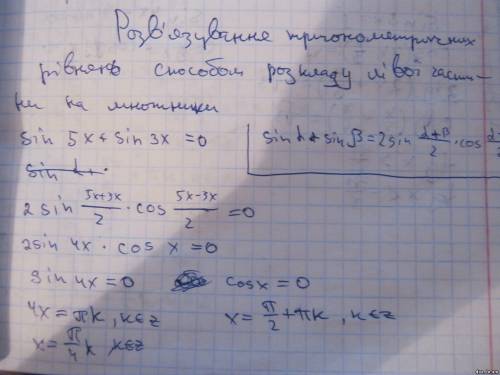 Розв'язування тригонометричних
рівнянь способом розкладу лівої части-
ни на множники
sin 5x + sin 3x = 0
sin α + sin β = 2 sin α+β/2 · cos α
sin α +
2 sin 5x+3x/2 · cos 5x-3x/2 = 0
2sin 4x · cos x = 0
sin 4x = 0 cos x = 0
4x = πk, k∈z x = π/2 + πk, k∈z
x = π/4 k k∈z